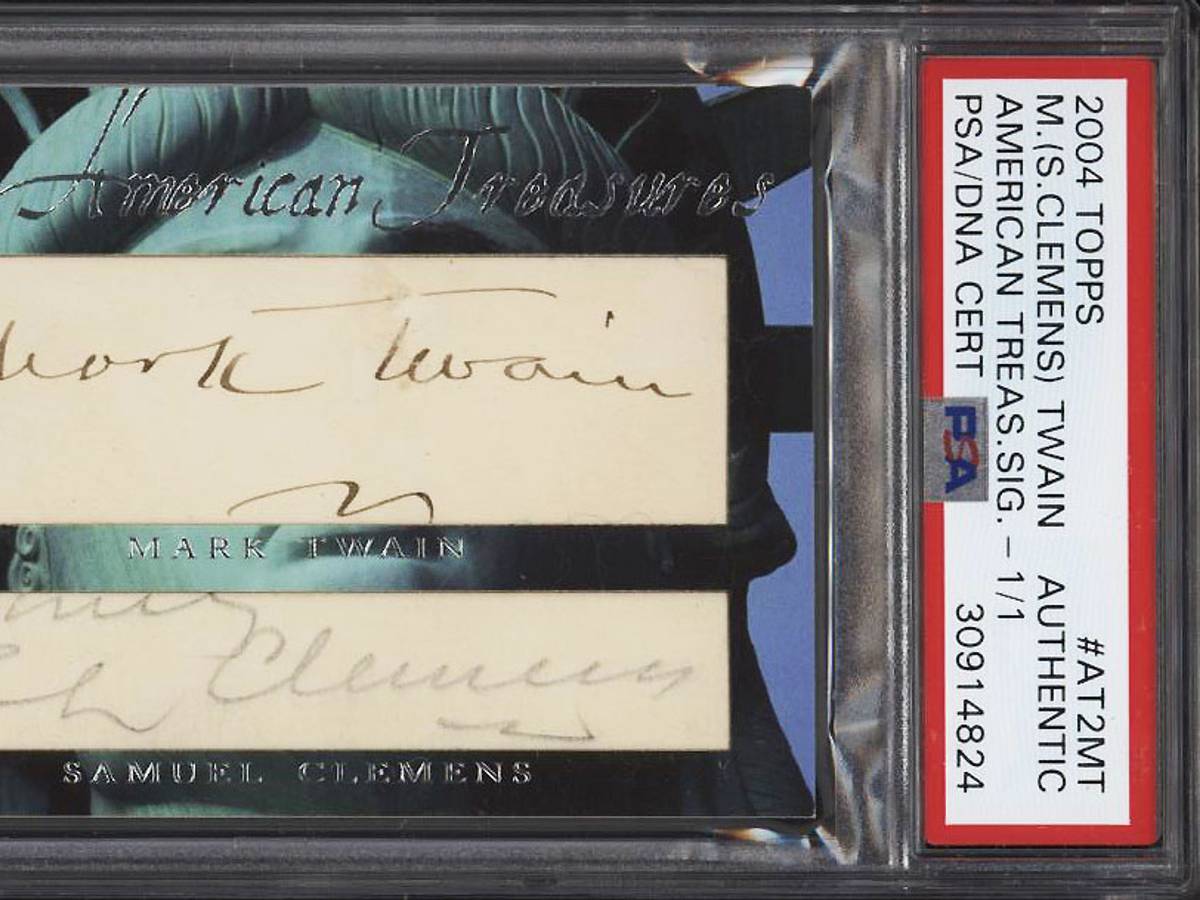 American Treasures
Mark Twain
MARK TWAIN
Clemens
SAMUEL CLEMENS
2004 TOPPS #AT2MT
M.(S.CLEMENS) TWAIN AUTHENTIC
AMERICAN TREAS.SIG. - 1/1
PSA/DNA CERT 30914824
PSA